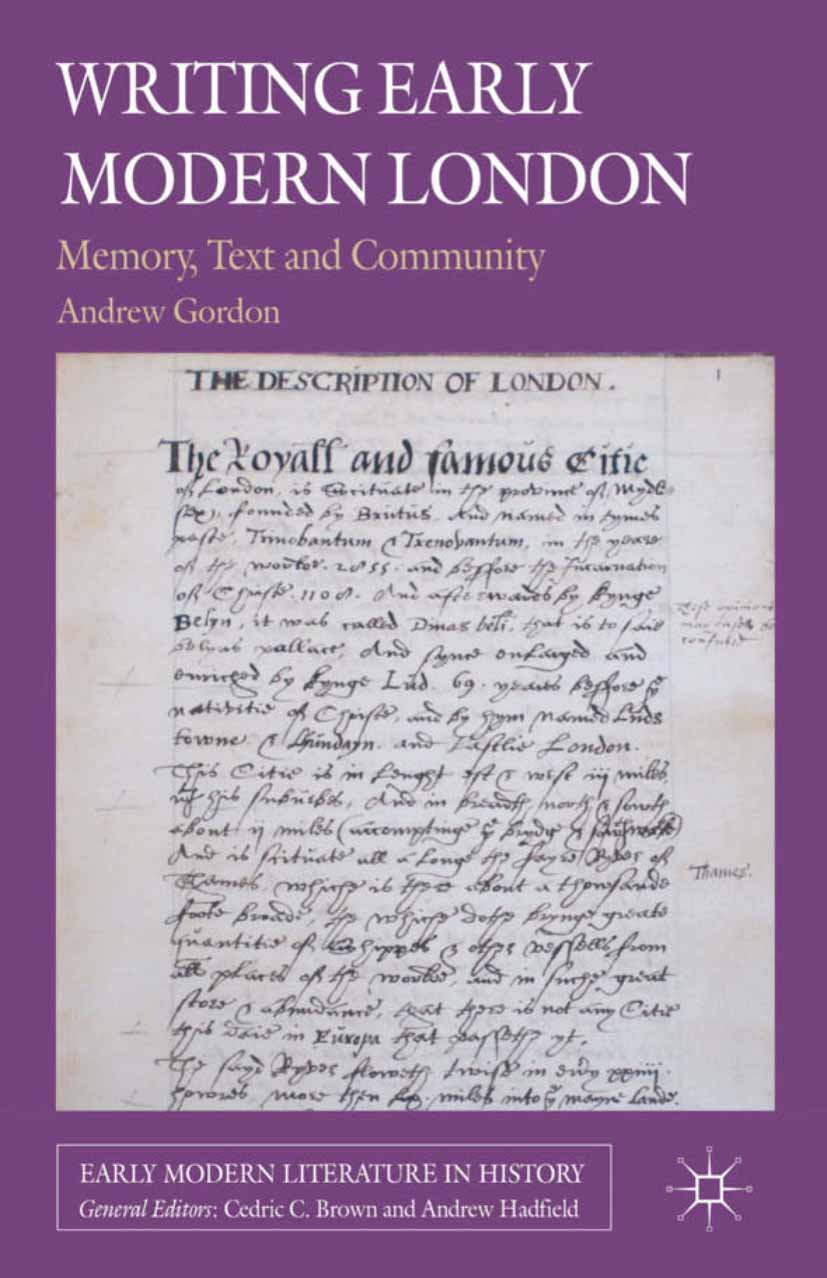 WRITING EARLY
MODERN LONDON
Memory, Text and Community
Andrew Gordon
THE DESCRIPTION OF LONDON.
1
The Royall and famous Citie
of London, is scituate in the province of Mydle
sex, founded by Brutus. And named in tymes
paste, Trinobantum & Trenovantum, in the yeare
of the worlde. 2855. and beffore the Incarnation
of Christe. 1108. And afterwardes by kynge
Belyn, it was called Dinas beli, that is to saie
belyns pallace, And synce enlarged and
enriched by kynge Lud. 69. yeares beffore yͤ
nativitie of Christe, and by hym named Luds
towne & and Lastlie London.
This Citie is in Lenght est & west iij miles,
wᵗ his suburbes, And in breadth north & sowth
about ij miles (accomptinge yͤ brydge &
And is scituate all a Longe the fayre Ryver of
Thames, whiche is there about a thowsande
foote broade, the whiche dothe brynge greate
quantitie of Shippes & other vessells from
all places of the worlde, and in suche great
store & abundance, that there is not any Citie
this daie in Europa that passethe yt.
The sayd Ryver floweth twise in every xxiiij.
howres more then miles into yͤ mayne Lande.
These opinions
may easely be
confuted
Thames.
EARLY MODERN LITERATURE IN HISTORY
General Editors: Cedric C. Brown and Andrew Hadfield